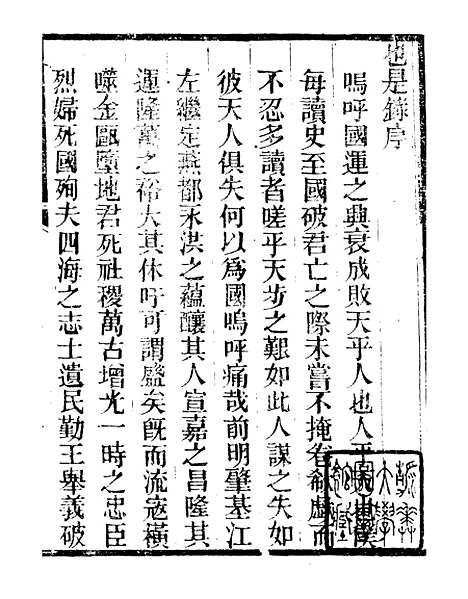 也是錄序
嗚呼國運之興衰成敗天乎人也人乎
每讀史至國破君亡之際未嘗不掩卷欷歔而
不忍多讀者嗟乎天步之艱如此人謀之失如
彼天人俱失何以爲國嗚呼痛哉前明肇基江
左繼定燕都永洪之蘊釀其人宣嘉之昌隆其
運隆萬之裕大其休吁可謂盛矣旣而流寇橫
噬金甌墮地君死社稷萬古增光一時之忠臣
烈婦死國殉夫四海之志士遺民勤王舉義破